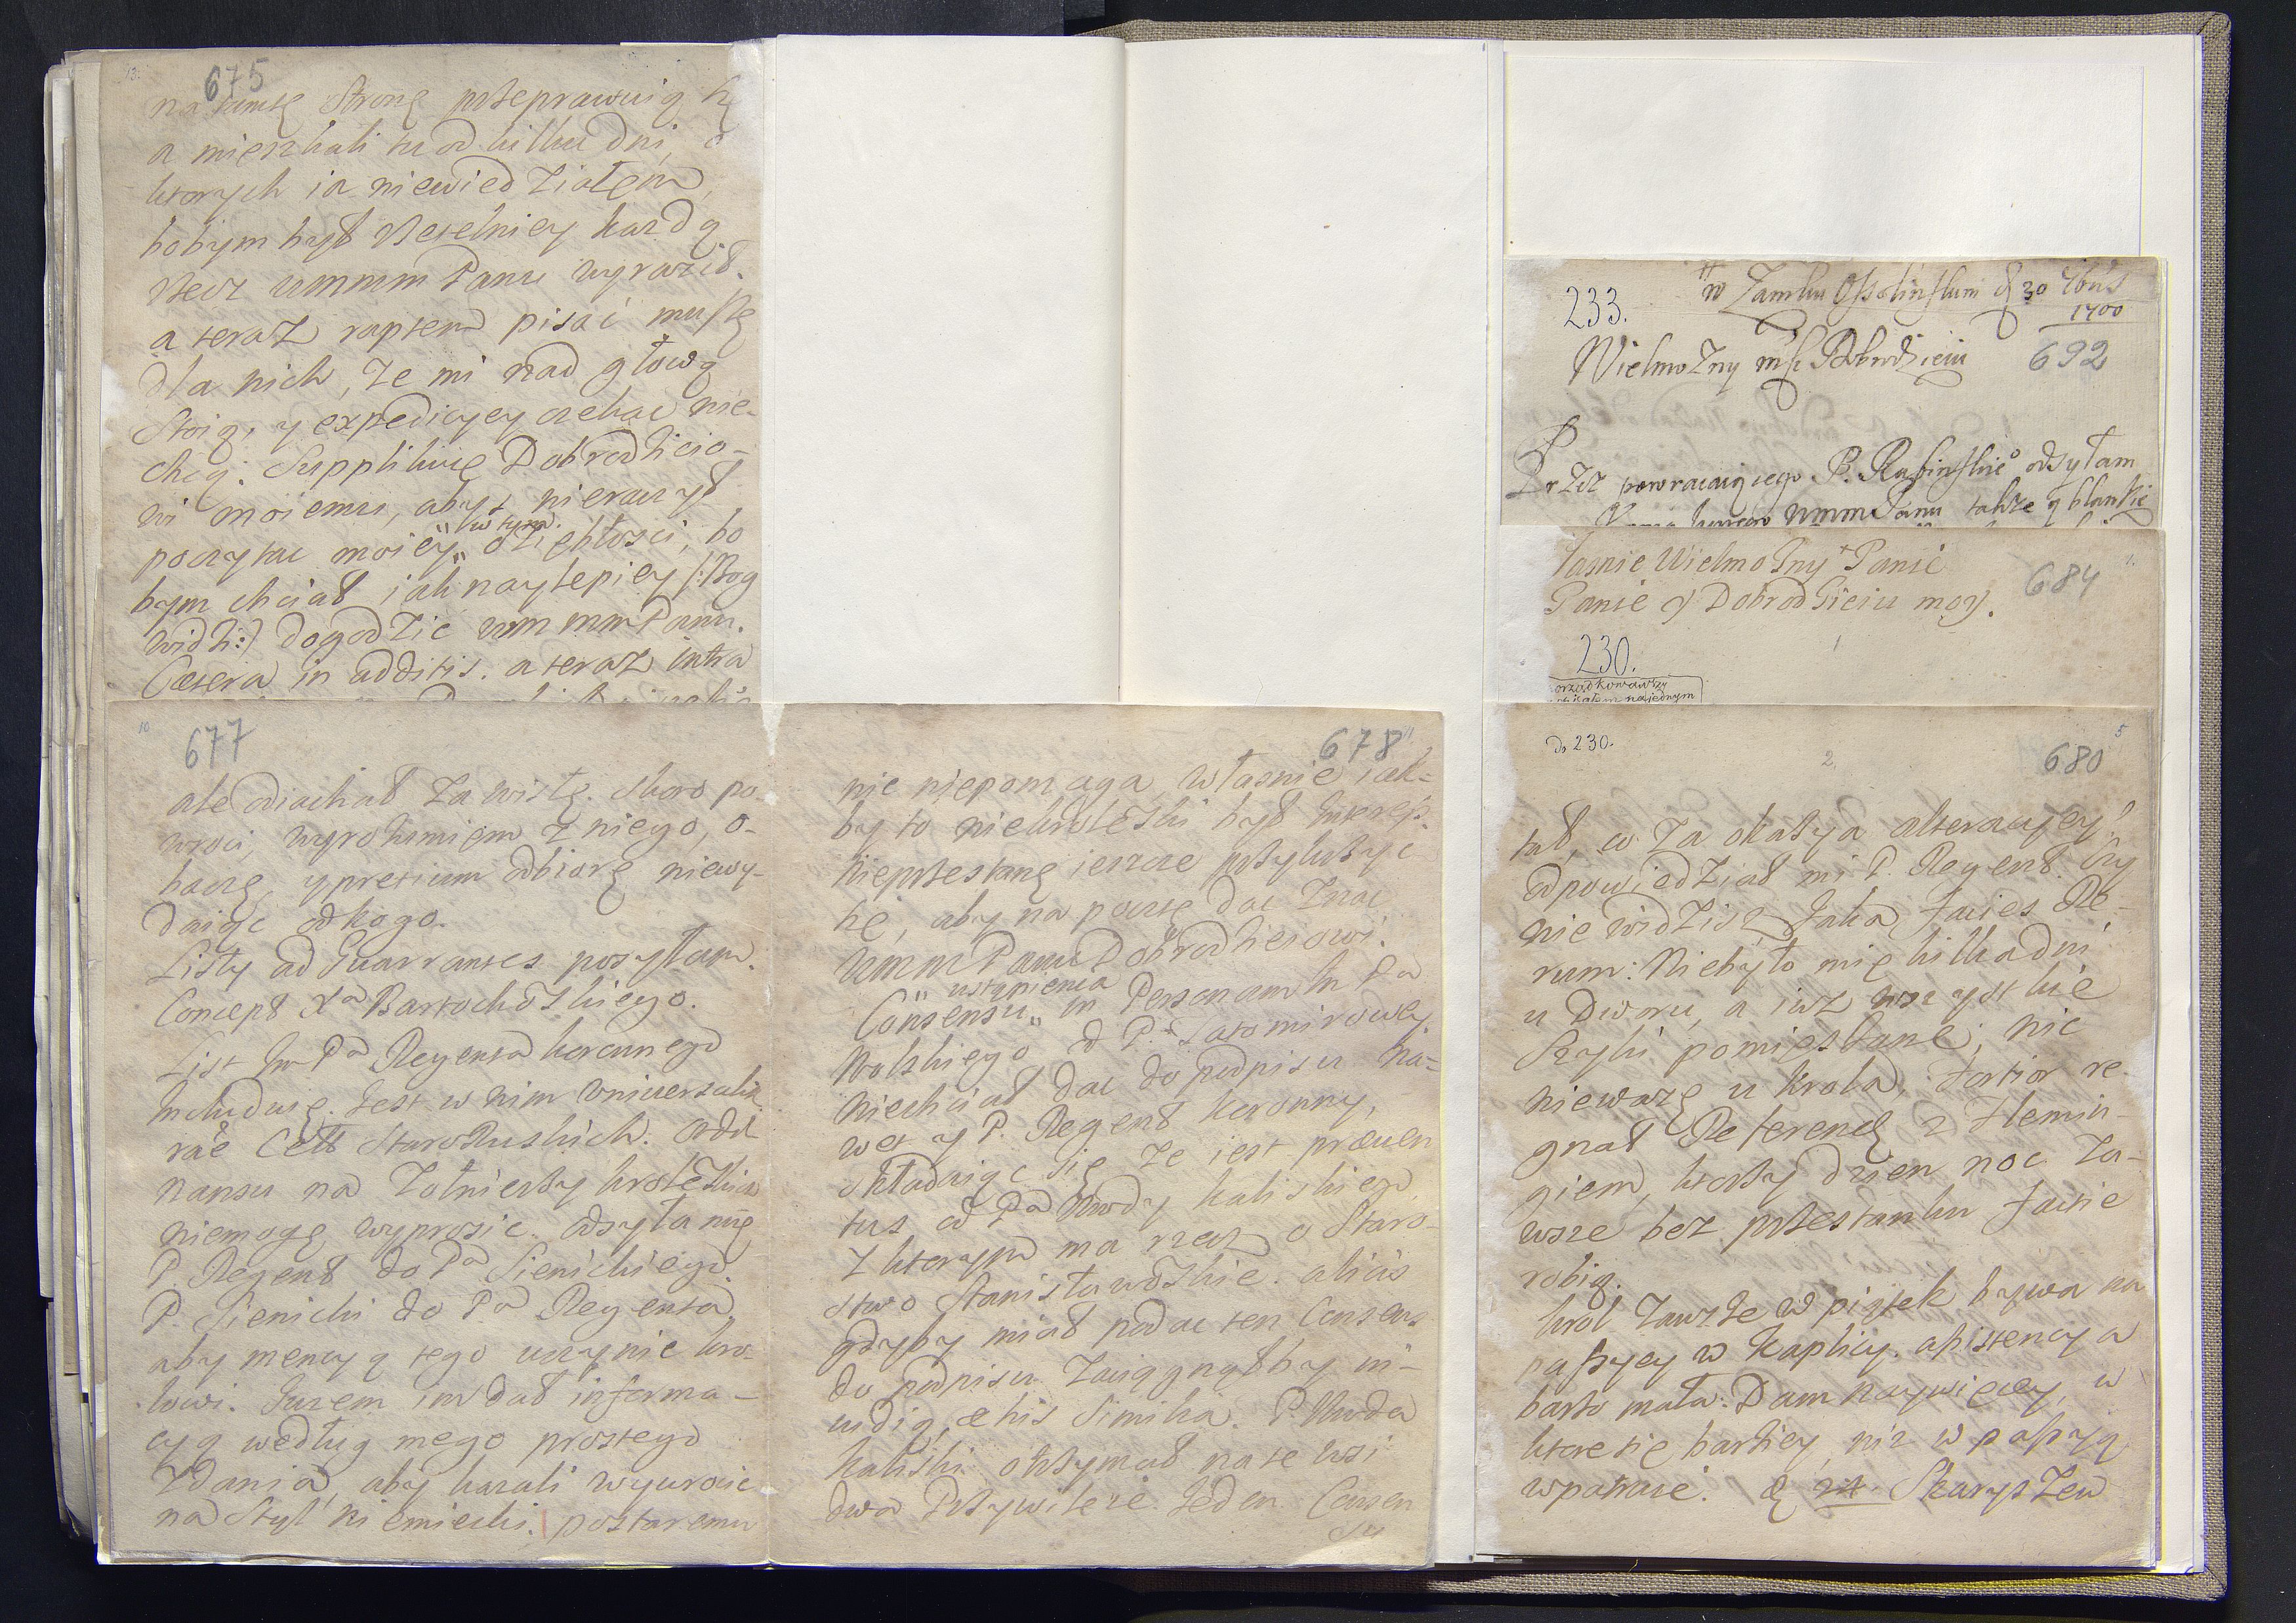 675
na tamtę stronę prżeprawuią się
a mieszkali tu od kilku dni, o
ktorych ia niewiedziałem,
bobym był rzetelniey kazdą
rzecz ummm Panu wyraził.
a teraz raptem pisać muszę
dla nich, że mi nad głową
stoią, y expedicyey czekac nie
chcą. Supplikuię Dobrodzieio-
wi moiemu, abyś nieraczył
poczytac moiey „w tym„ oziębłosci, bo
bym chciał iak naylepiey /:Bog
widzi:/ dogodzic wm mm Panu.
Cætera in additis. a teraz intra
677
ale odiachał za wisłę. skoro po-
wroci, wyrozumiem z niego, o-
baczę, y pretium odbiorę niewy-
daiąc od kogo.
Listy ad Guarrantes posyłam.
Concept Xa Bartochowskiego.
List Im Pa Regenta koronnego
Includuię. Jest w nim vniuersalik
rãe Cełł Staro Ruskich. Ordi-
nansu na Zołnierzy krolewskich
niemogę wyprosic. odsyła mię
P. Regent do Pa Sienickiego.
P. Sienicki do Pa Regenta,
aby mencyą tego uczynic kro-
lowi. Juzem im dał informa-
cyą według mego prostego
zdania, aby kazali wywrocic
na styl niemiecki. postaremu
678 11
nic niepomaga, własnie iak-
by to niekrolewski był Interess.
nieprzestanę ieszcze przykrzyc
się, aby na pocztę dac znac
ummPanu Dobrodzieiowi.
Consensu „ustąpienia„ in Personam Im Pa
Wolskiego od P. Jatomirowey
niechciał dac do podpisu na-
wet y P. Regent koronny,
składaiąc się, ze iest præuen
tus od Pa Wwdy kaliskiego,
z ktorym ma rzecz o Staro-
stwo Stanisławowskie. alias
gdyby miał podac ten Consens
do podpisu zaciągnąłby in-
uidią, & his similia. P. Wwda
kaliski otrzymał na te wsi
dwa Przywileie. Jeden Consen
su
233.
w Zamku Ossolinskim d 30 7bris
1700
Wielmozny msc PDobrodzieiu
692
Przez powracaiącego P. Rabinskiego odsyłam
ummPanu takze y blankie
Jasnie Wielmozny Panie
Panie y Dobrodzieiu moy.
684
1.
230.
orządkowawszy
na jednym
do 230.
2.
680
5
tał, co za okazya alteracyey?
odpowiedział mi P. Regent. Czy
nie widzisz Jaka facies Re-
rum: Niebyło mię kilka dni
u Dworu, a iuz wszystkie
szyki pomieszane; nic
niewazę u krola, fortior re-
gnat Referend: z Flemin-
giem, ktorzy dzien noc za-
wsze bez przestanku facie
robią.
krol zawsze w piątek bywa na
passyey w Kaplicy. assistencya
barzo mała. Dam naywięcey, w
ktore się barziey, niz w passyą
wpatruie. Skaryszew